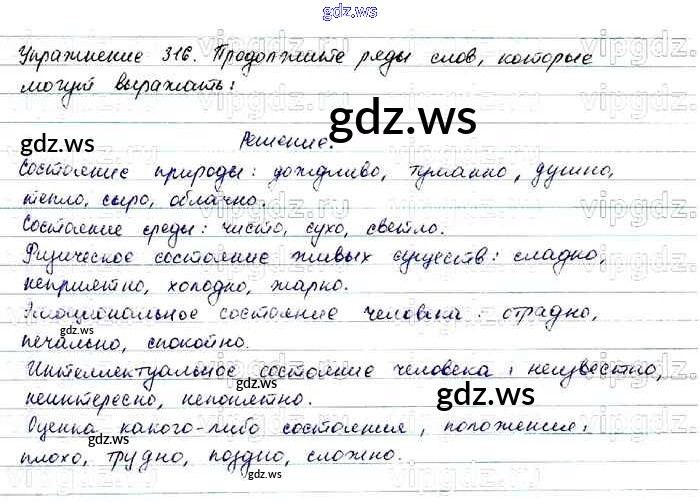 gdz.ws
Упражнение 316. Продолжите ряды слов, которые
могут выражать:
gdz.ws
gdz.ws
Решение.
Состояние природы: дождливо, туманно, душно,
тепло, сыро, облачно.
Состояние среды: чисто, сухо, светло.
Физическое состояние живых существ: сладко,
неприятно, холодно, жарко.
Эмоциональное состояние человека: отрадно,
gdz.ws
печально, спокойно.
Интеллектуальное состояние человека: неизвестно,
gdz.ws
gdz.ws
неинтересно, непонятно.
Оценка какого-либо состояния, положения:
gdz.ws
плохо, трудно, поздно, сложно.
gdz.ws
vipgdz.ru